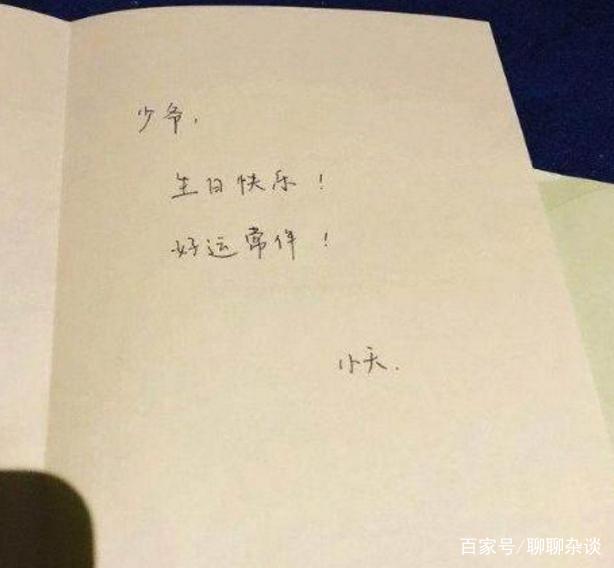 少爷，
生日快乐！
好运常伴！
小天.
百家号/聊聊杂谈